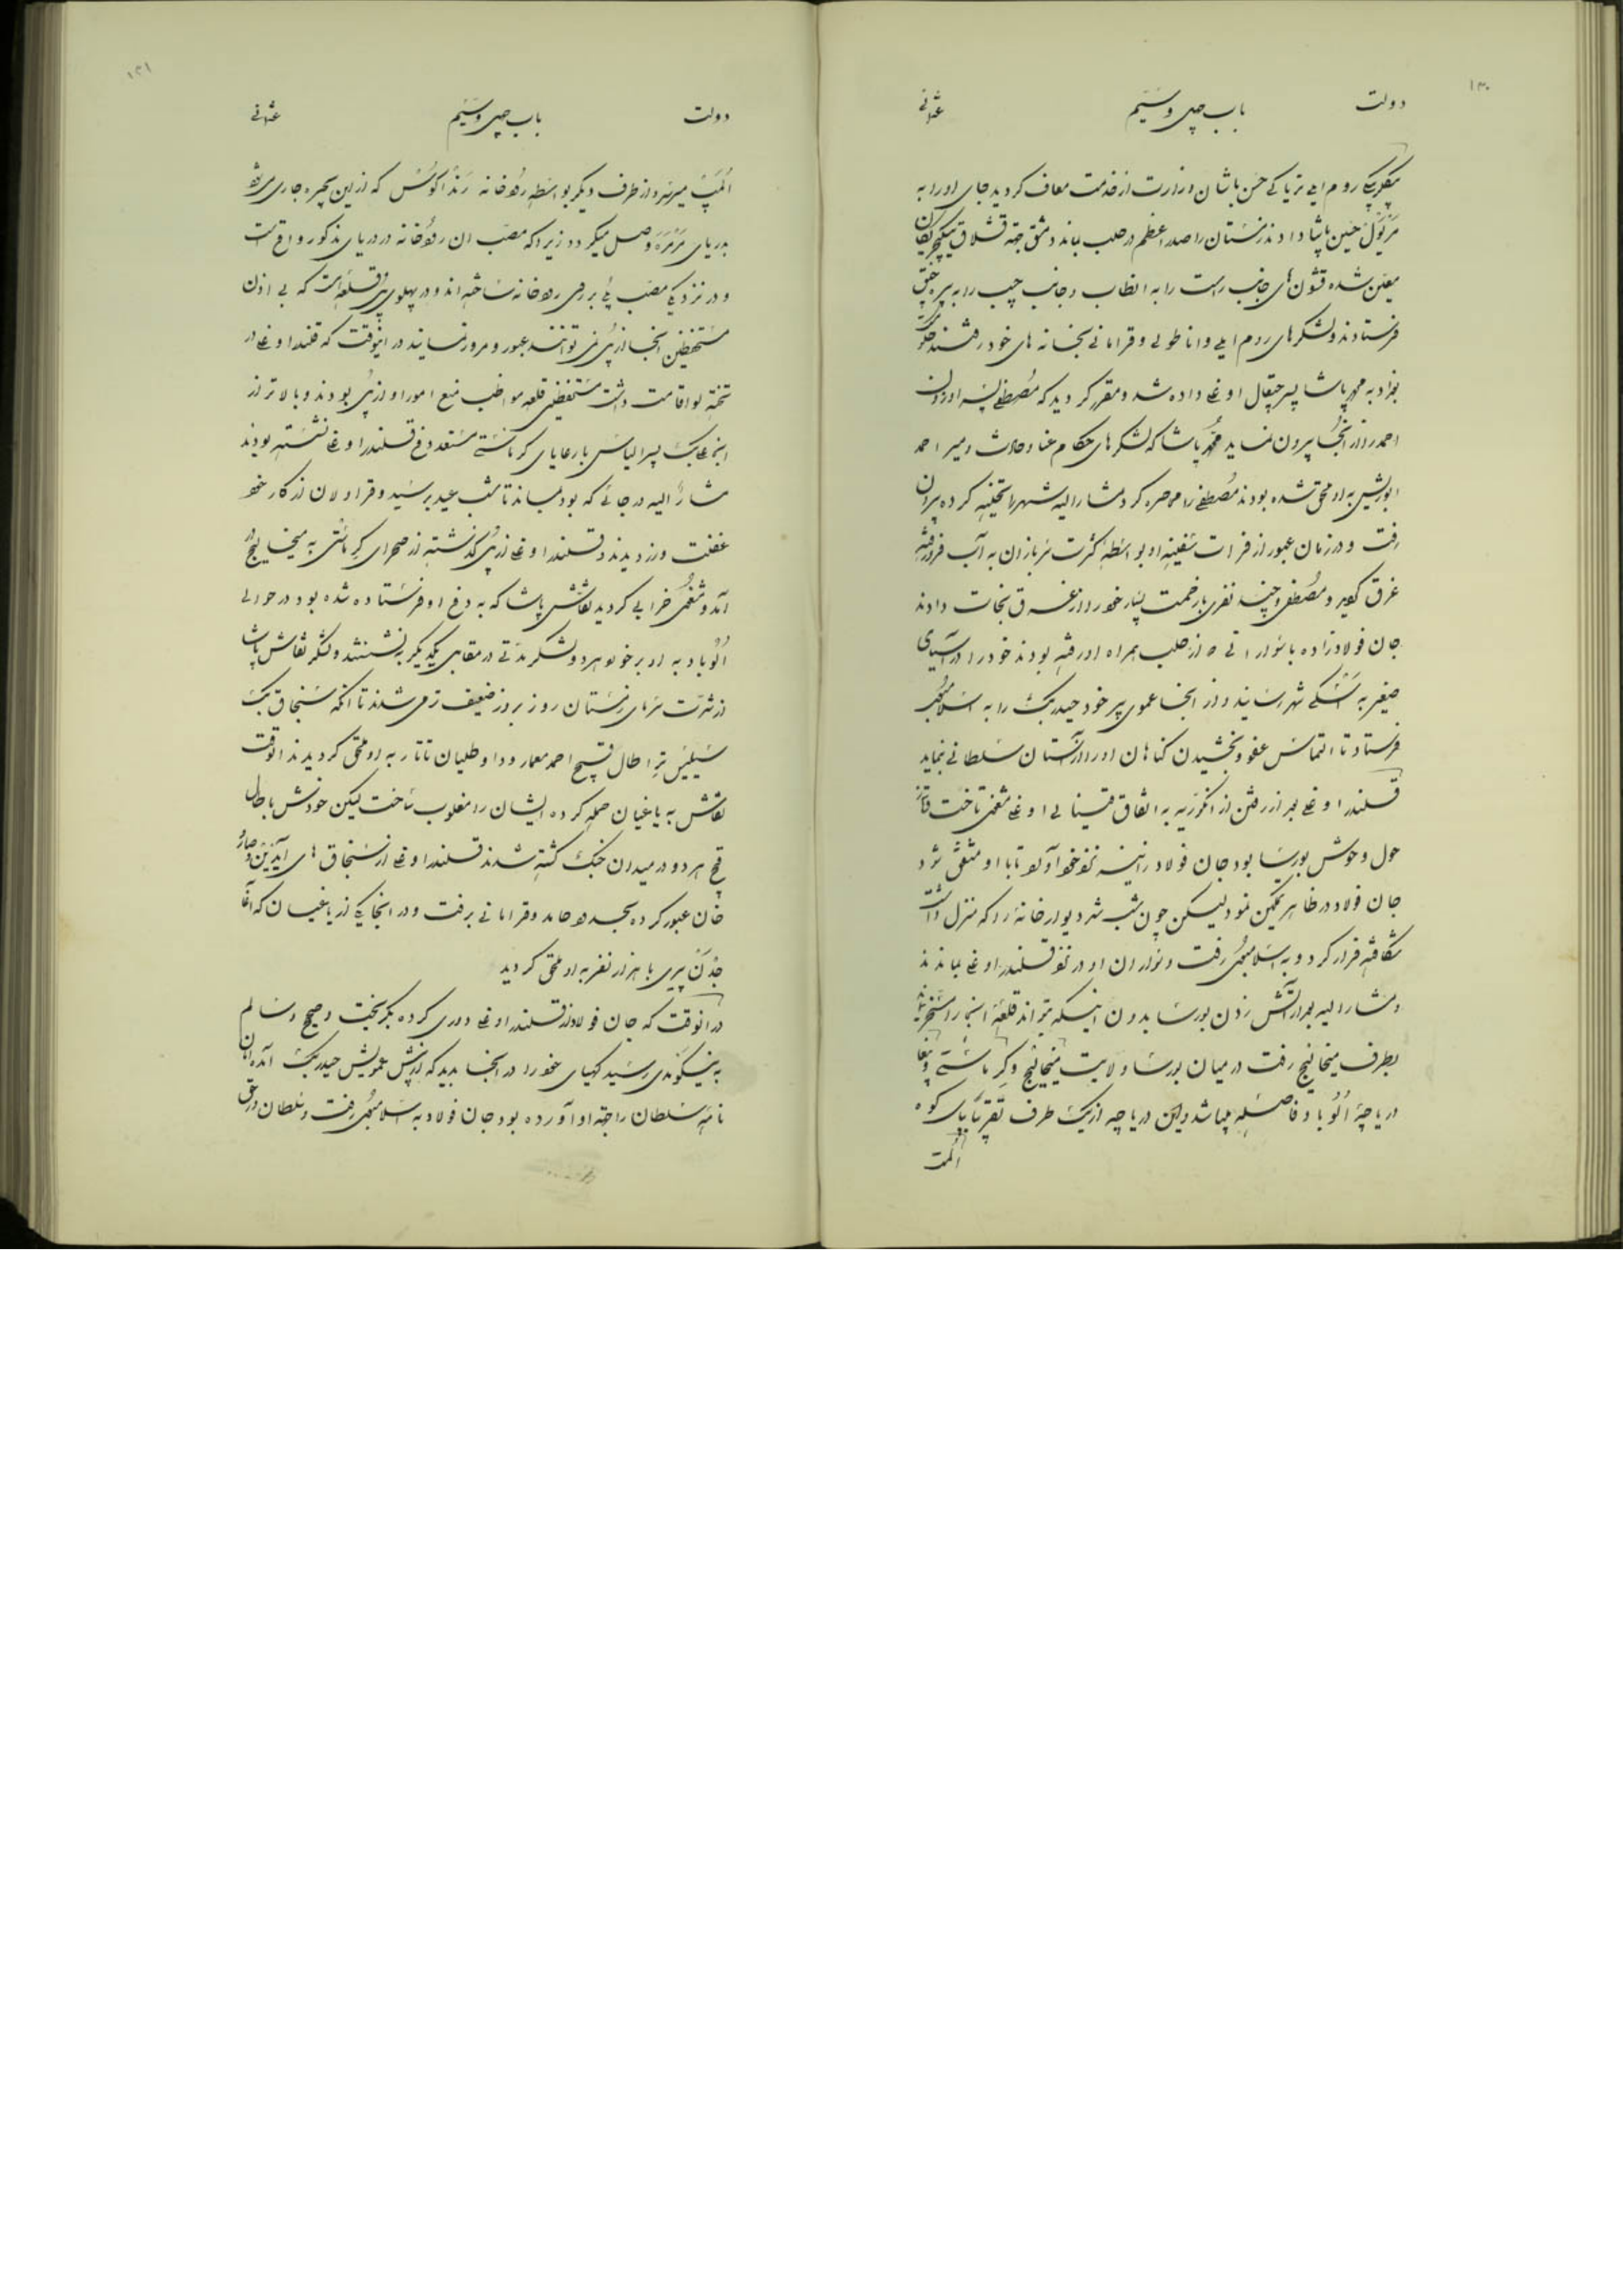 ۱۳۰
دولت باب چهل و سیم عثمانی
بیکلربیکی روم ایلی تریاکی حسن پاشا از وزارت از خدمت معاف کردید جای او را به
حسین پاشا دادند زمستان را صدر اعظم در حلب بماند دمشق جهة قشلاق ینکیچریان
معین شده قشون های جانب راست را به انطاب و جانب چپ را به بیره جق
فرستادند و لشکرهای روم ایلی و اناطولی و قرامانی بخانه های خود رفتند حکومت
بغداد به محمد پاشا پسر چقال اوغلی داده شد و مقرر کردید که مصطفی پسر اوزون
احمد را از انجا بیرون نماید محمد پاشا که لشکرهای حکام و میر احمد
ابوریش به او ملحق شده بودند مصطفی را محاصره کرد مشار الیه شهر را تخلیه کرده بیرون
رفت و در زمان عبور از فرات سفینه او بواسطه کثرت سربازان به آب فرو رفته
غرق کردید و مصطفی و چند نفری با زحمت بسیار خود را از غرق نجات دادند
جان فولادزاده با سواران که از حلب همراه او رفته بودند خود را در آسیای
صغیر به اسکی شهر رسانید و از انجا عموی پیر خود حیدر بیک را به اسلامبول
فرستاد تا التماس عفو و بخشیدن کناهان او را از آستان سلطانی نماید
قلندر اوغلی بعد از رفتن از انکوریه به اتفاق قینالی اوغلی مشغول تاخت و تاز
حول و حوش بورسا بود جان فولاد را نیز نزد خود آورد تا با او متفق شود
جان فولاد در ظاهر تمکین نمود لیکن چون شب شد دیوار خانه را که منزل داشت
شکافته فرار کرد و به اسلامبول رفت و سواران او در نزد قلندر اوغلی بماندند
و مشار الیه بعد از آتش زدن بورسا بدون اینکه بتواند قلعه انجا را تسخیر نماید
بطرف میخالیج رفت در میان بورسا و لایت میخالیج و کرماستی
دریاچه الوباد فاصله میباشد و این دریاچه از یک طرف تقریبا بپای کوه
المپ
۱۳۱
دولت باب چهل و سیم عثمانی
المپ میرسد و از طرف دیگر بواسطه رودخانه رنداکوس که از این بحیره جاری میشود
بدریای مرمره وصل میکردد زیرا که مصب ان رودخانه در دریای مذکور واقع است
و در نزدیکی مصب پلی بر روی رودخانه ساخته اند و در پهلوی پل قلعه ایست که بی اذن
مستحفظین انجا از پل نمی توانند عبور و مرور نمایند در اینوقت که قلندر اوغلی در
اقامت داشت مستحفظین قلعه مواظب منع امور او از پل بودند و بالاتر از
اینها علی بیک پسر الیاس با رعایای کرماستی مستعد دفع قلندر اوغلی نشسته بودند
مشار الیه در جائی که بود بماند تا شب عید برسید و قراولان از کار خود
غفلت ورزیدند و قلندر اوغلی از پل گذشته از صحرای کرماستی به میخالیج
آمد و مشغول خرابی کردید نقاش پاشا که به دفع او فرستاده شده بود در حوالی
الوباد به او برخورد هر دو لشکر مدتی در مقابل یکدیگر بنشستند و لشکر نقاش پاشا
از شدت سرمای زمستان روز بروز ضعیف تر می شدند تا انکه سنجاق بیک
سیلیستر اطال قبیح احمد معمار و داوطلبان تاتار به او ملحق کردیدند انوقت
نقاش به یاغیان حمله کرده ایشان را مغلوب ساخت لیکن خودش با اطال
قبیح هر دو در میدان جنک کشته شدند قلندر اوغلی از سنجاق های آیدین و صارو
خان عبور کرده بحدود حامد و قرامانی برفت و در انجا یکی از یاغیان که آغا
جدن پیری با هزار نفر به او ملحق کردید
در انوقت که جان فولاد از قلندر اوغلی دوری کرده بکریخت و صحیح و سالم
به رسید کهیای خود را در انجا بدید که از پیش عمویش حیدر بیک آمده امان
نامه سلطان را جهة او آورده بود جان فولاد به اسلامبول رفت و سلطان در حق